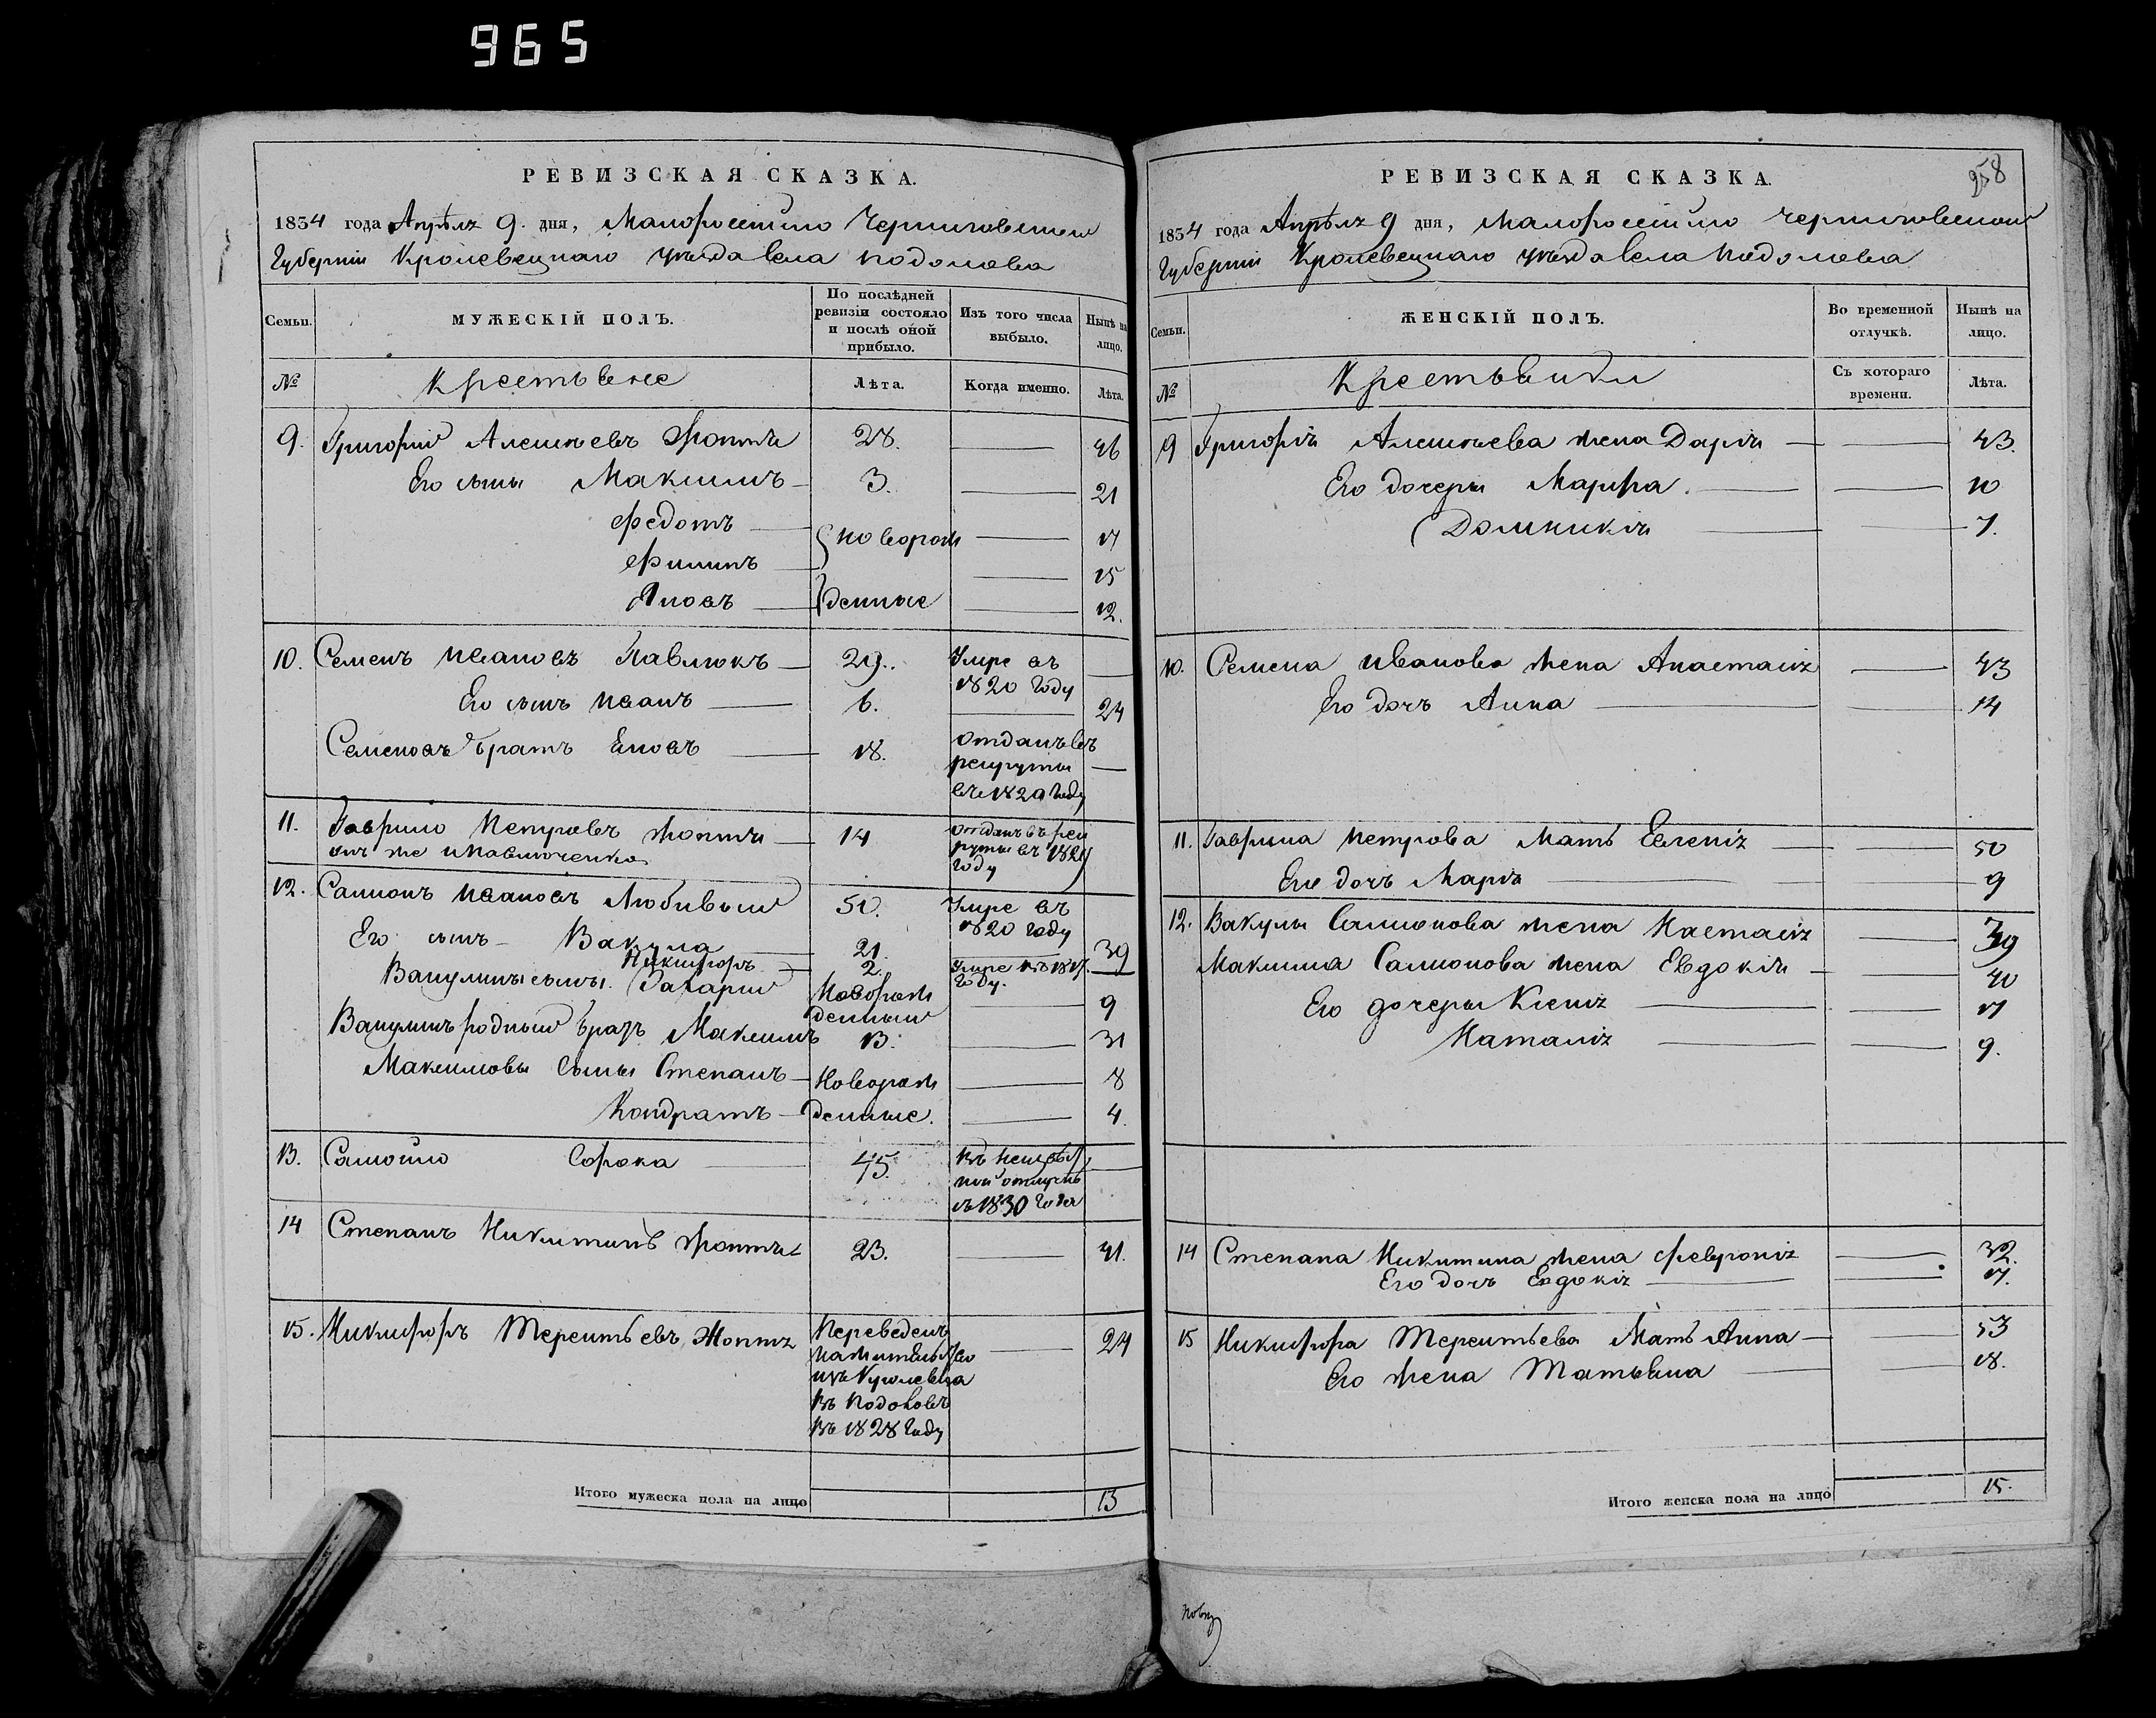 965
РЕВИЗСКАЯ СКАЗКА.
1834 года Апрѣля 9. дня, Малороссійско Черниговской
Губерніи Кролевецкаго уѣзда села Подолова
Семьи.
МУЖЕСКІЙ ПОЛЪ.
По послѣдней ревизіи состояло и послѣ оной прибыло.
Изъ того числа выбыло.
Нынѣ на лицо.
№
Крестьяне
Лѣта.
Когда именно.
Лѣта.
9. Григорій Алексѣевъ 28. — 46
Его сыны Максимъ — 3. — 21
Федотъ — новорож — 17
Филипъ — 15
Яковъ — денные — 12.
10. Семенъ Ивановъ Павлюкъ — 29. Умре въ 1820 году —
Его сынъ Иванъ — 6. — 24
Семеновъ братъ — 18. Отданъ въ рекруты въ 1820 году —
11. Гаврило Петровъ — 14 отданъ въ рек руты въ году
онъ же
12. Самсонъ Ивановъ Любивый 50. Умре въ 1820 году
Его сынъ — Вакула — 21. 39
Никифоръ — 2. Умре 1817. году. —
Вакулины сыны. Захарій Новорож денный — 9
Вакулинъ родный братъ Максимъ 13. — 31
Максимовы сыны Степанъ — Новорож — 8
Кондратъ — денные. — 4.
13. Самойло Сорока — 45. Въ отлучкѣ съ 1830 года —
14 Степанъ Никитинъ 23. — 41.
15. Никифоръ Терентьевъ Переведенъ на жительство изъ Кролевца въ Подоловъ въ 1828 году — 24
Итого мужеска пола на лицо 13
258
РЕВИЗСКАЯ СКАЗКА.
1834 года Апрѣля 9 дня, Малороссійско Черниговской
Губерніи Кролевецкаго уѣзда села Подолова
Семьи.
ЖЕНСКІЙ ПОЛЪ.
Во временной отлучкѣ.
Нынѣ на лицо.
№
Крестьянки
Съ котораго времени.
Лѣта.
9 Григорія Алексѣева жена Дарія — — 43.
Его дочеры Марфа. — — 10
Домникія — — 7.
10. Семена Иванова жена Анастасія — 43
Его дочь Анна — — 14
11. Гаврила Петрова Мать Евгенія — — 50
Ея дочь Марія — — 9
12. Вакулы Самсонова жена Настасія — 39
Максима Самсонова жена Евдокія — — 40
Его дочеры Ксенія — — 17
Наталія — — 9.
14 Степана Никитина жена Февронія — 32.
Его дочь Евдокія — — 17.
15 Никифора Терентьева Мать Анна — — 53
Его жена Татьяна — — 18.
Итого женска пола на лицо 15.